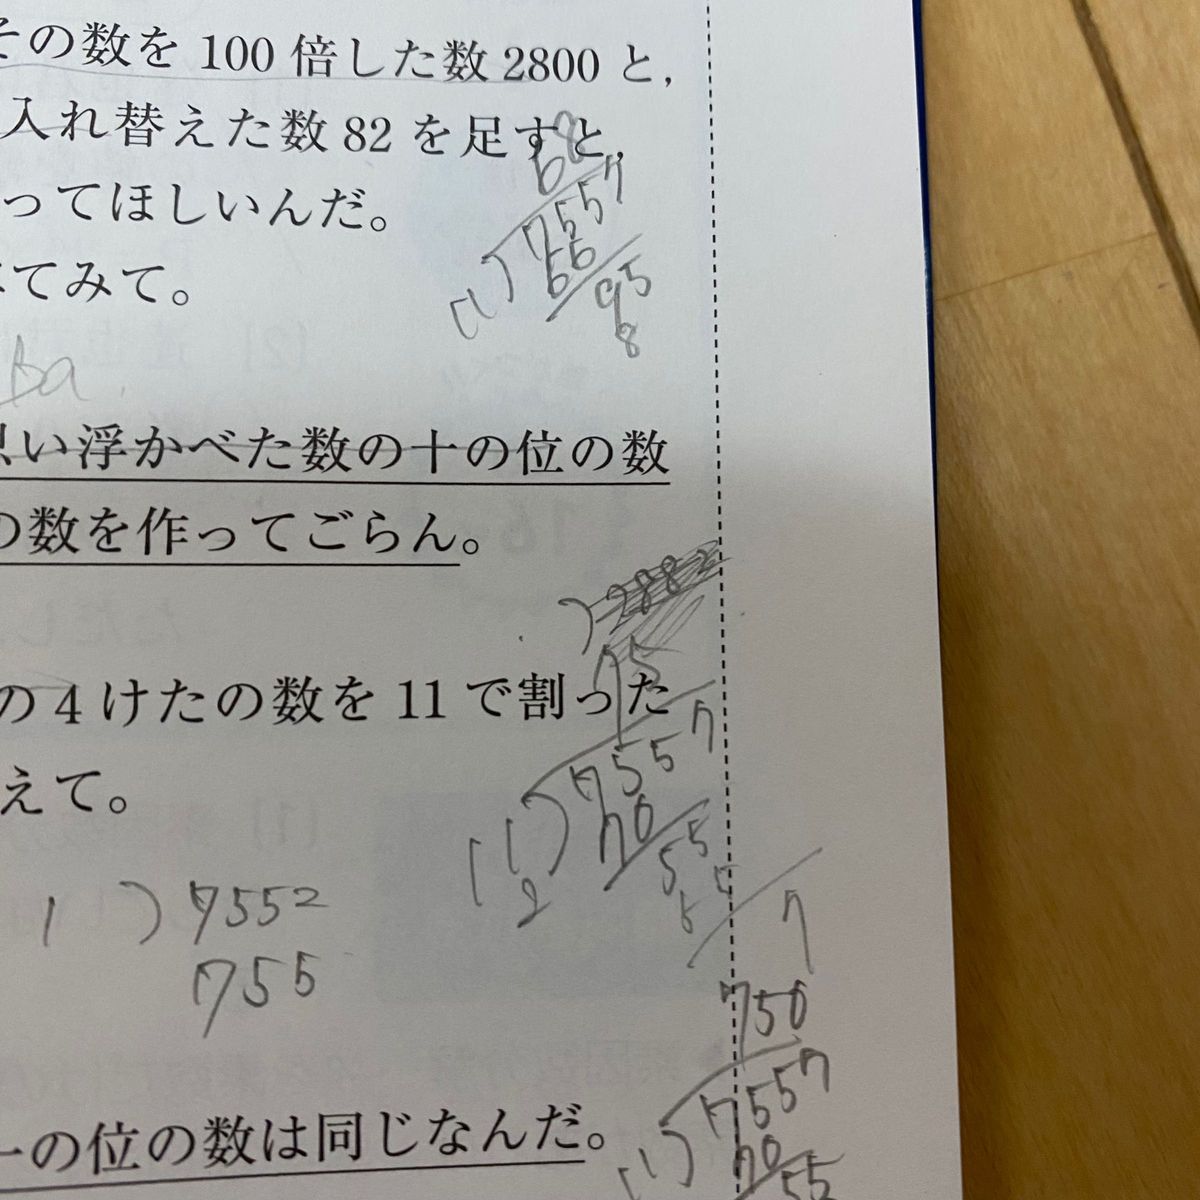 その数を 100 倍した数 2800 と,
入れ替えた数 82 を足すと,
68
ってほしいんだ。
11)7557
66
95
てみて。
8
Ba
い浮かべた数の十の位の数
の数を作ってごらん。
)2882
75
の 4 けたの数を 11 で割った
11)7557
70
えて。
55
2
1 ) 7552
7
755
750
11)7557
70
55
一の位の数は同じなんだ。